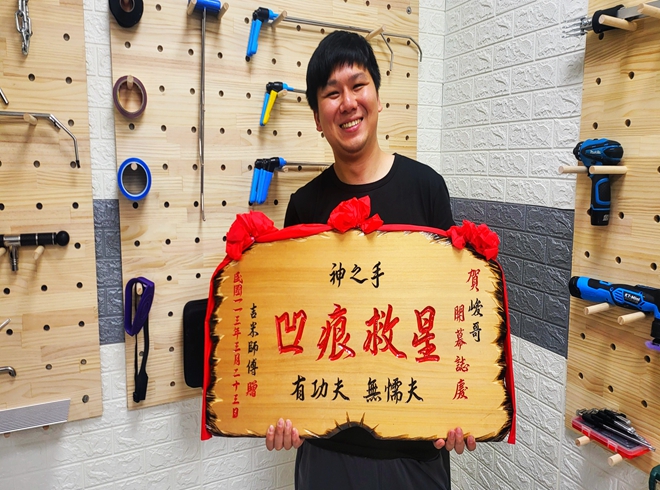 賀 峻哥
開幕誌慶
神之手
凹痕救星
有功夫 無懦夫
吉米師傅 贈
民國一一三年三月二十三日